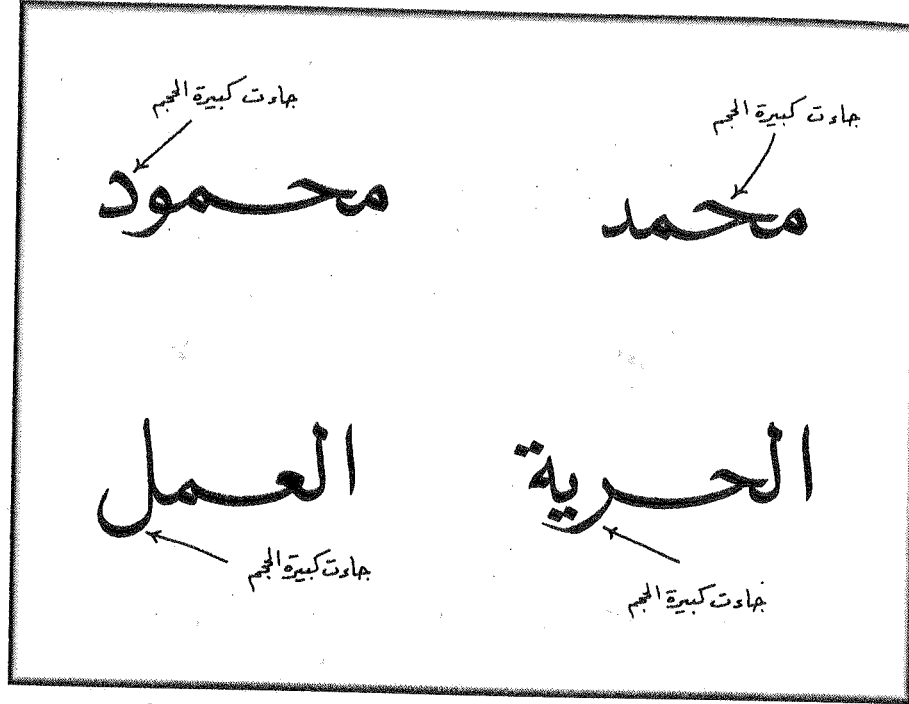 جاءت كبيرة الحجم
محمد
جاءت كبيرة الحجم
محمود
الحرية
جاءت كبيرة الحجم
العمل
جاءت كبيرة الحجم